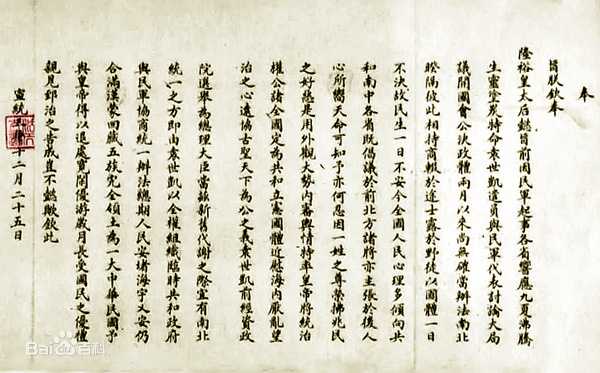 奉
旨朕欽奉
隆裕皇太后懿旨前因民軍起事各省響應九夏沸騰
生靈塗炭特命袁世凱遣員與民軍代表討論大局
議開國會公決政體兩月以來尚無確當辦法南北
暌隔彼此相持商輟於途士露於野徒以國體一日
不決故民生一日不安今全國人民心理多傾向共
和南中各省既倡議於前北方諸將亦主張於後人
心所嚮天命可知予亦何忍因一姓之尊榮拂兆民
之好惡是用外觀大勢內審輿情特率皇帝將統治
權公諸全國定為共和立憲國體近慰海內厭亂望
治之心遠協古聖天下為公之義袁世凱前經資政
院選舉為總理大臣當茲新舊代謝之際宜有南北
統一之方即由袁世凱以全權組織臨時共和政府
與民軍協商統一辦法總期人民安堵海宇乂安仍
合滿漢蒙回藏五族完全領土為一大中華民國予
與皇帝得以退處寬閒優游歲月長受國民之優禮
親見郅治之告成豈不懿歟欽此
宣統三年十二月二十五日
Bai百科